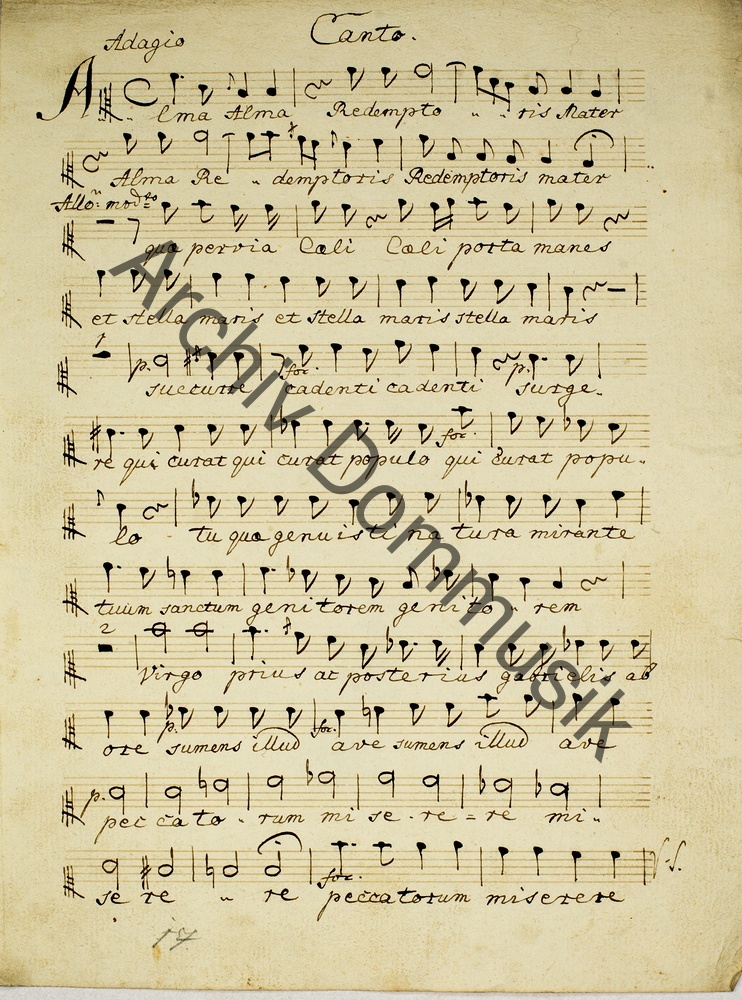 Canto.
Adagio
Alma Alma Redempto " " ris Mater
Alma Re " demptoris Redemptoris mater
Allo: modto
quo pervia Cœli Cœli porta manes
et stella maris et stella maris stella maris
1
p. for. p.
succurre cadenti cadenti surge.
for.
re qui curat qui curat populo qui curat popu..
lo tu quo genuisti na tura mirante
tuum sanctum genitorem genito " rem
2
Virgo prius ac posterius gabrielis ab
p. for.
ore sumens illud ave sumens illud ave
p.
pec cato . rum mi se . re = re mi..
V-S.
for.
se re " re peccatorum miserere
17
Archiv Dommusik